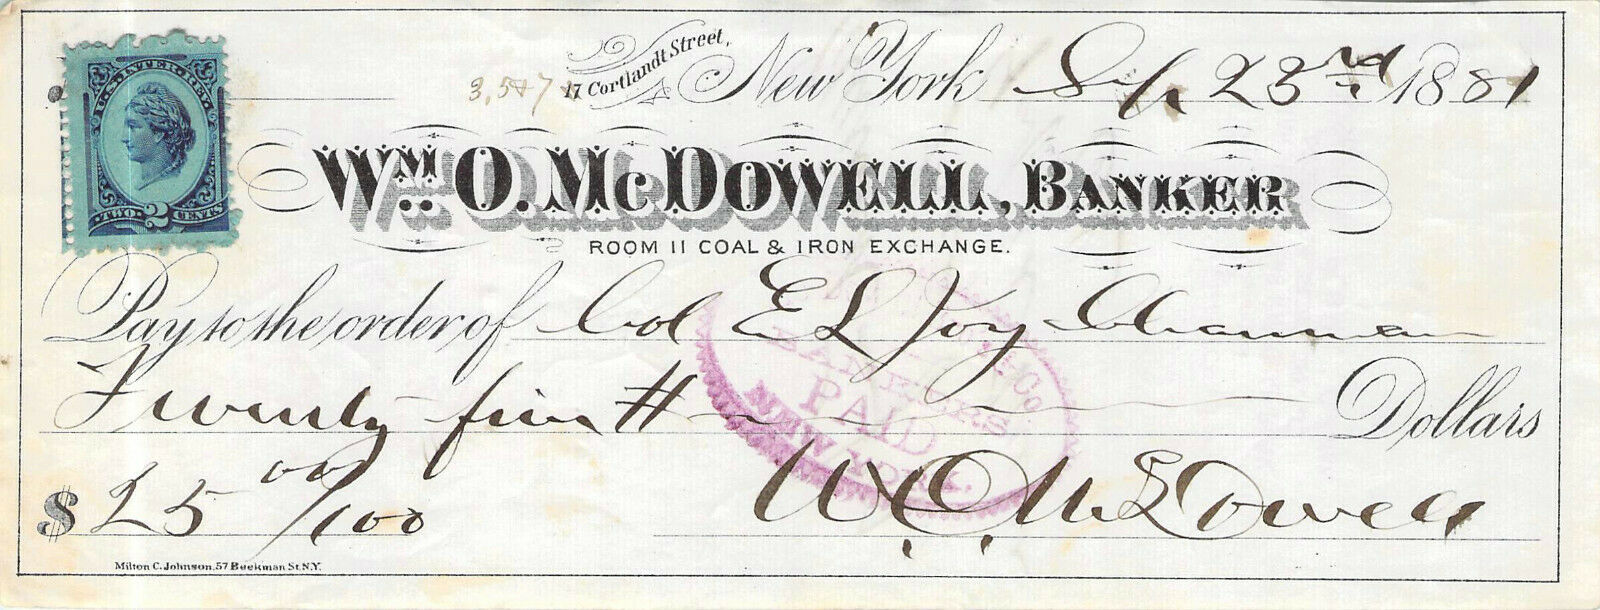 U.S. INTER. REV.
TWO 2 CENTS
17 Cortlandt Street,
New York Sep 23rd 1881
Wm. O. McDowell, Banker
ROOM 11 COAL & IRON EXCHANGE.
Pay to the order of Col E L Joy Chairman
Twenty five # Dollars
& Co
BANKERS
PAID
NEW YORK.
$ 25 00/100
W. O. McDowell
Milton C. Johnson, 57 Beekman St. N.Y.